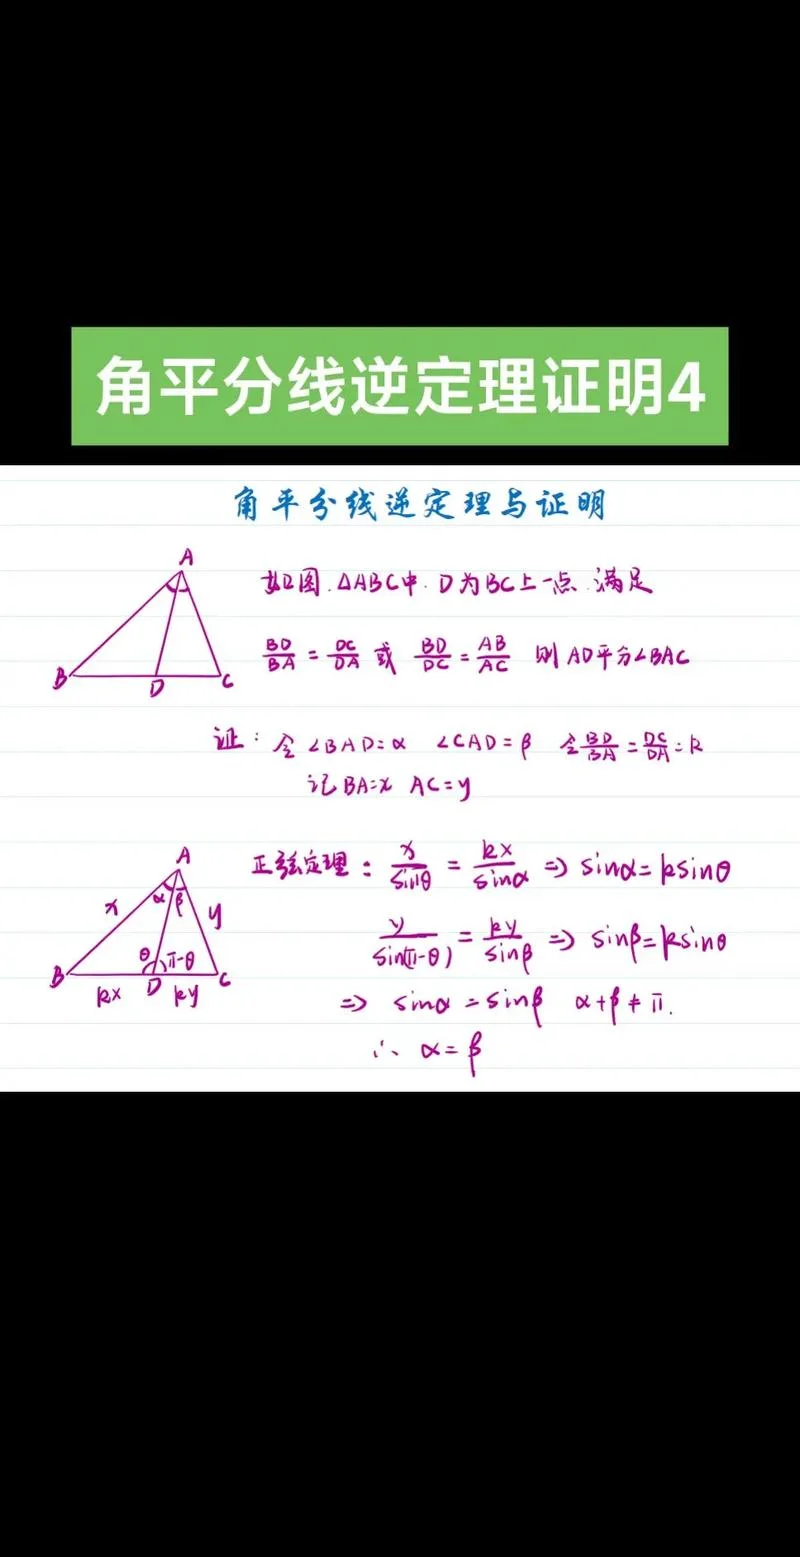 角平分线逆定理证明4
角平分线逆定理与证明
A
B
D
C
如图.△ABC中.D为BC上一点.满足
BD/BA = DC/DA 或 BD/DC = AB/AC 则AD平分∠BAC
证: 令∠BAD=α ∠CAD=β 令BD/BA=DC/DA=k
记BA=x AC=y
A
α β
x
y
θ π-θ
B
D
C
kx
ky
正弦定理: x/sinθ = kx/sinα => sinα=ksinθ
y/sin(π-θ) = ky/sinβ => sinβ=ksinθ
=> sinα=sinβ α+β≠π.
∴ α=β